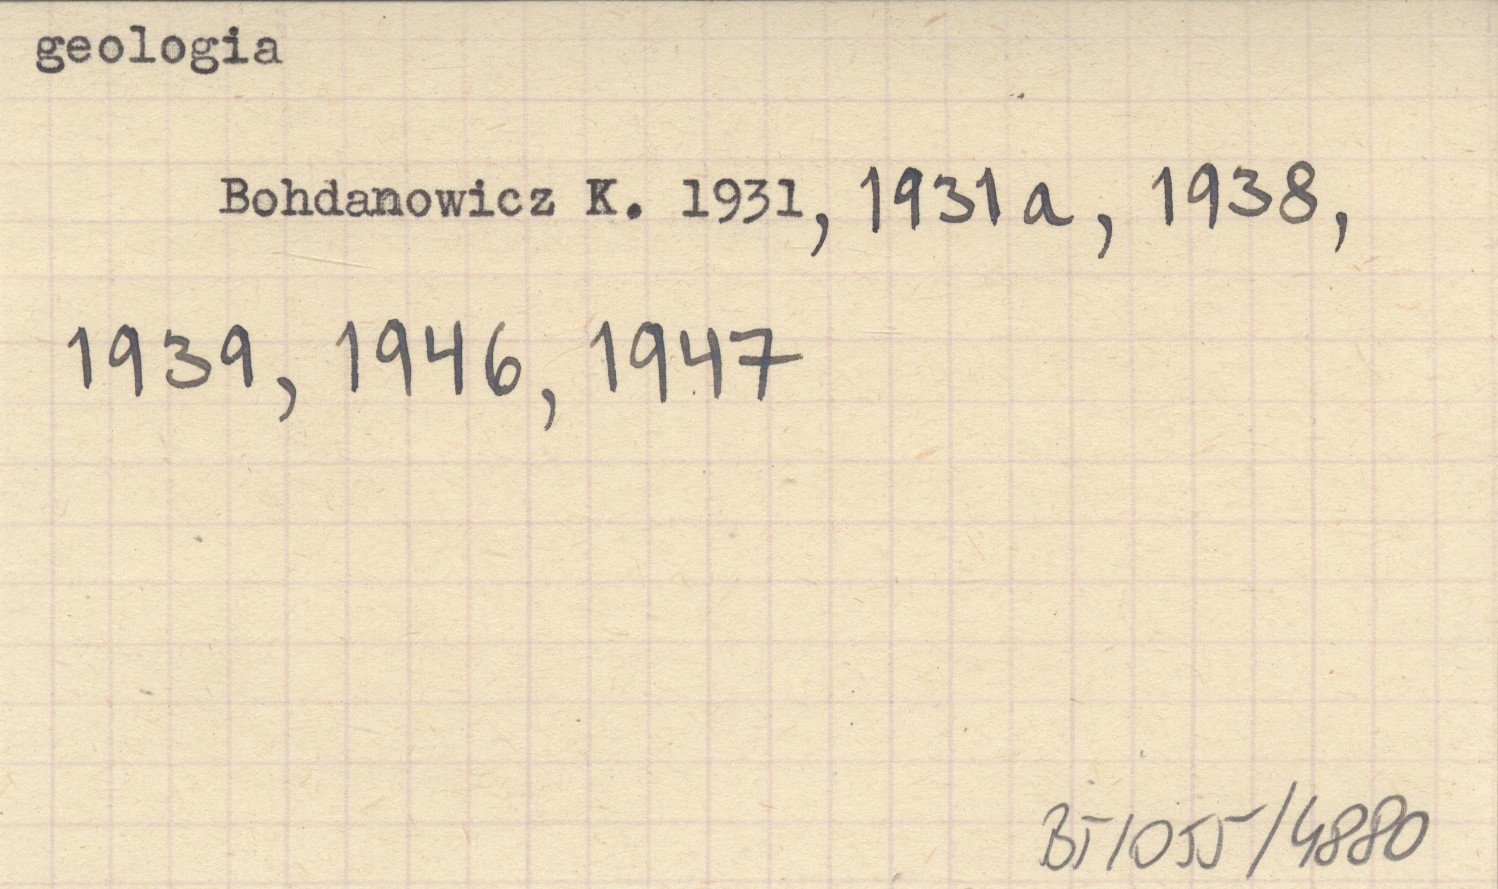 geologia
Bohdanowicz K. 1931, 1931a, 1938,
1939, 1946, 1947
BT/055/4880